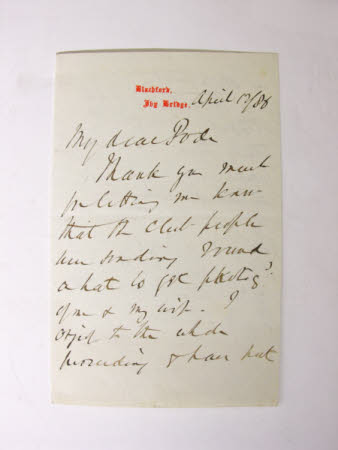 Blachford,
Ivy Bridge.
April 17/88
My dear Pode
Thank you much
for letting me know
that the Club people
are sending round
a hat to get photog?
of me & my wife. I
object to the whole
proceeding & have put